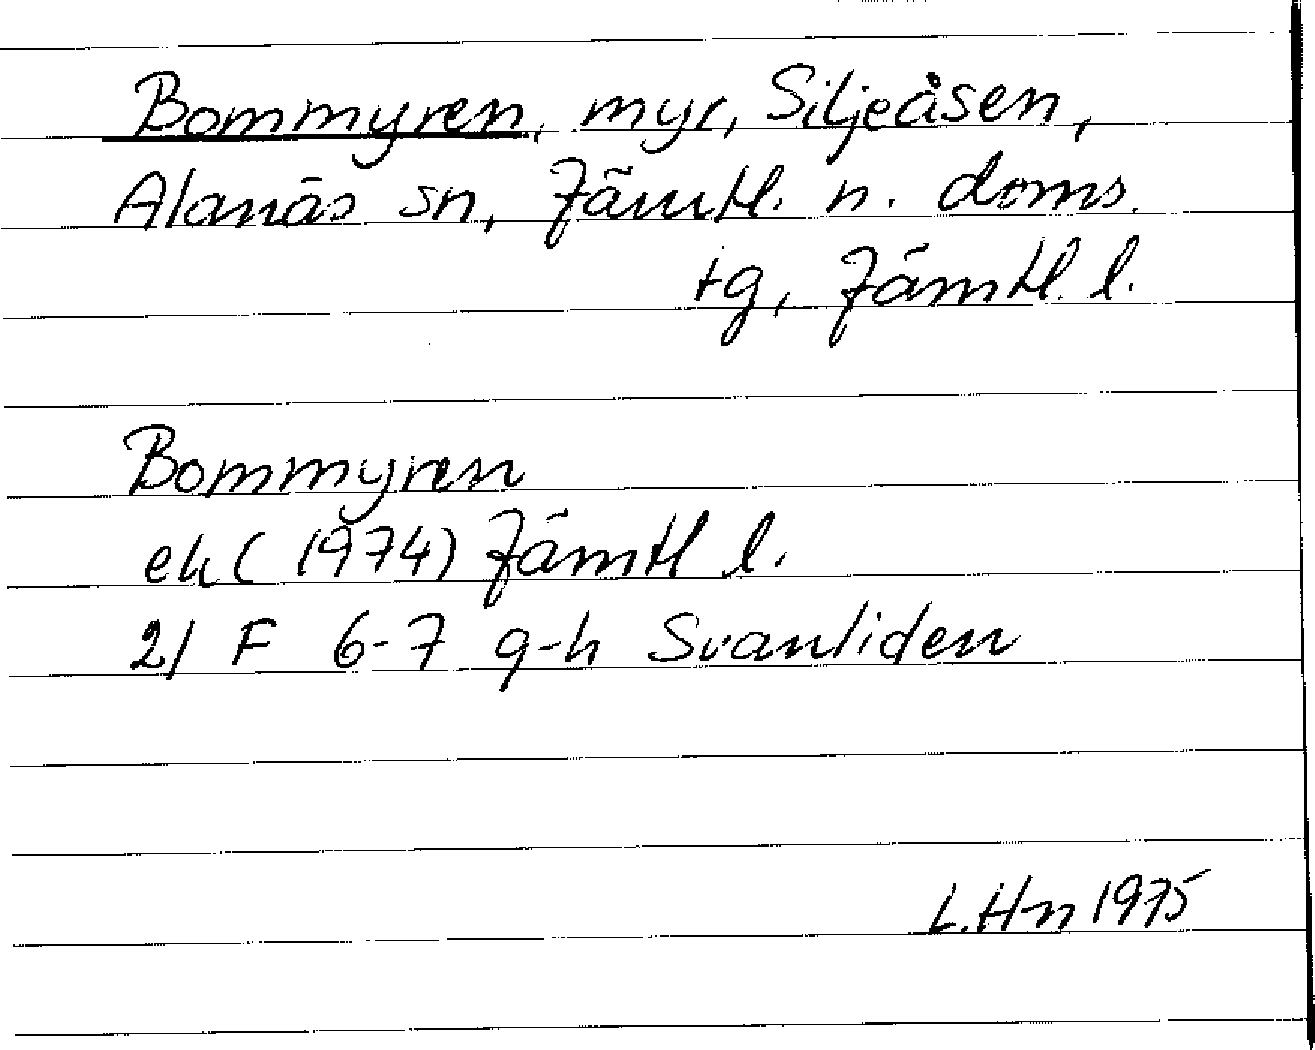 Bommyren, myr, Siljeåsen,
Alanäs sn, Jämtl. n. doms.
tg, Jämtl. l.
Bommyren
ek (1974) Jämtl l.
21 F 6-7 g-h Svanliden
L.Hn 1975